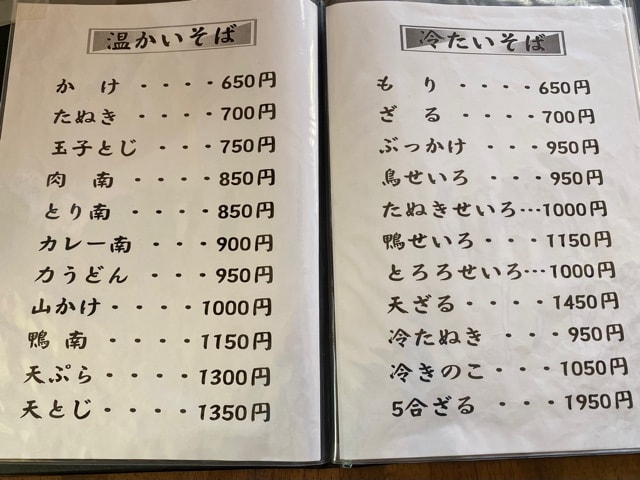 温かいそば
かけ・・・・650円
たぬき・・・・700円
玉子とじ・・・750円
肉南・・・・850円
とり南・・・・850円
カレー南・・・900円
力うどん・・・950円
山かけ・・・・1000円
鴨南・・・・1150円
天ぷら・・・・1300円
天とじ・・・・1350円
冷たいそば
もり・・・・650円
ざる・・・・700円
ぶっかけ・・・950円
鳥せいろ・・・950円
たぬきせいろ…1000円
鴨せいろ・・・1150円
とろろせいろ…1000円
天ざる・・・・1450円
冷たぬき・・・950円
冷きのこ・・・1050円
5合ざる・・・1950円